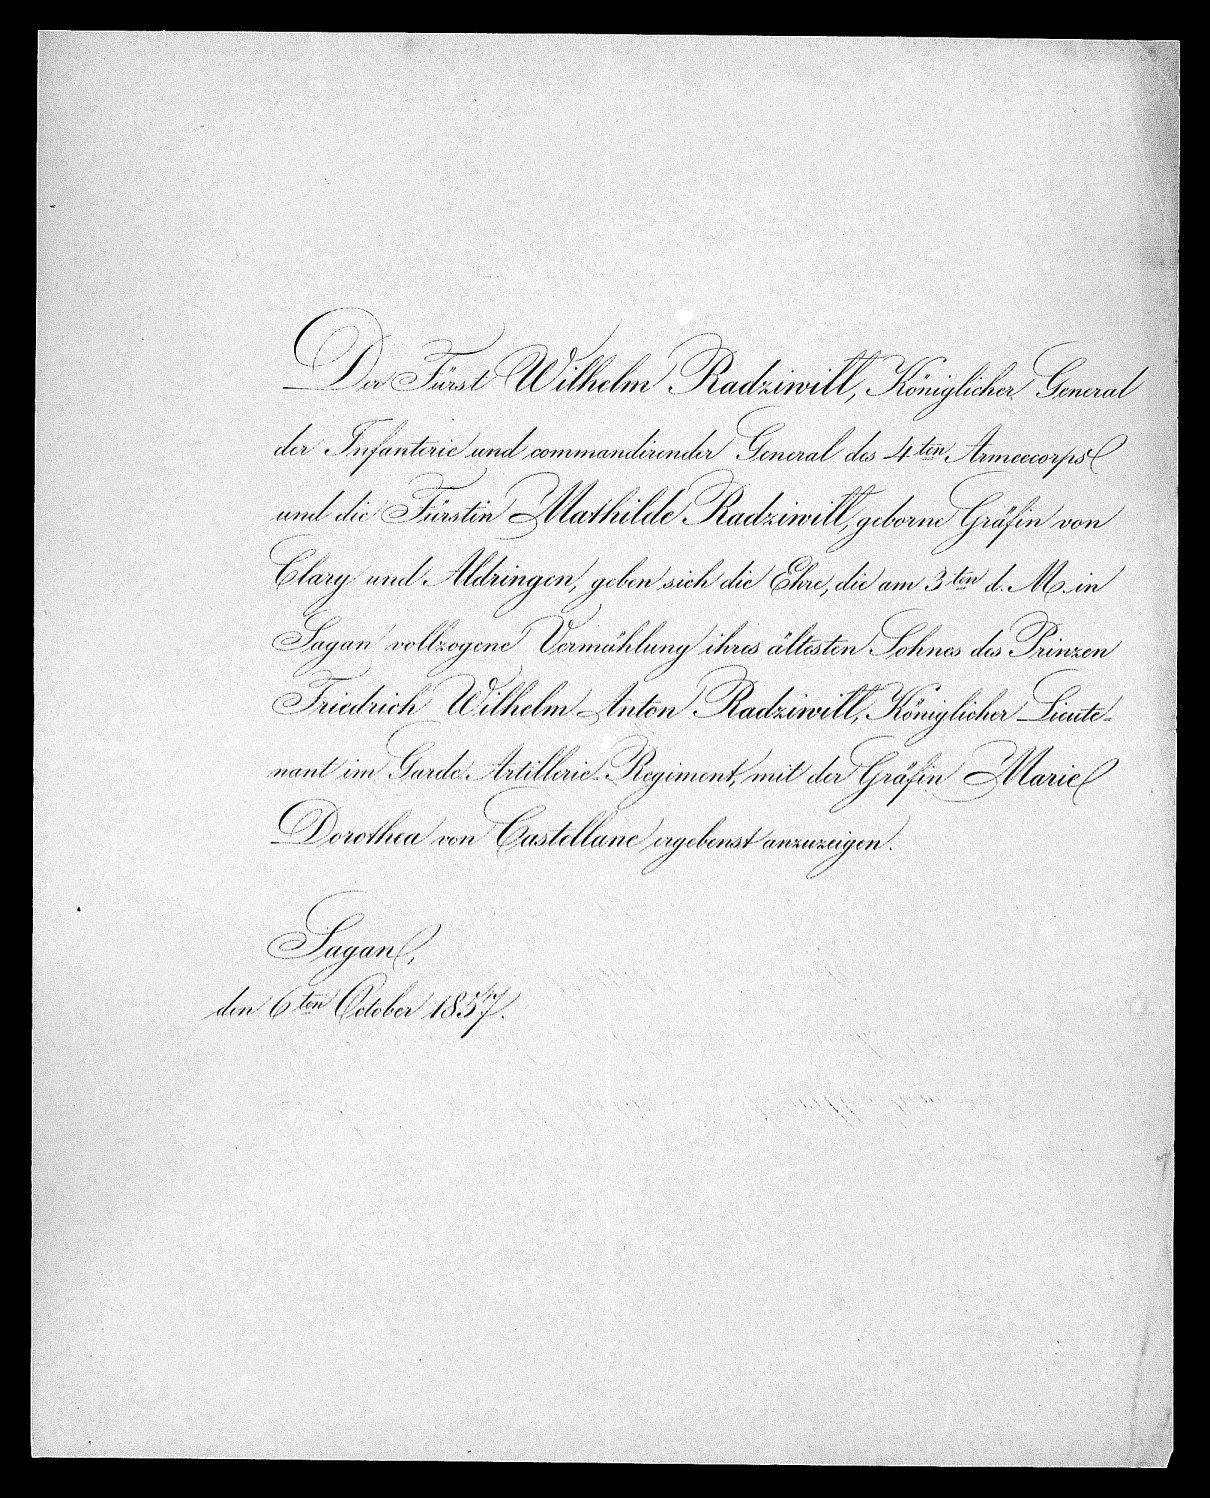 Der Fürst Wilhelm Radziwill, Königlicher General
der Infanterie und commandirender General des 4ten Armeecorps
und die Fürstin Mathilde Radziwill, geborne Gräfin von
Clary und Aldringen, geben sich die Ehre, die am 3ten d. M. in
Sagan vollzogene Vermählung ihres ältesten Sohnes des Prinzen
Friedrich Wilhelm Anton Radziwill, Königlicher Lieute-
nant im Garde Artillerie-Regiment, mit der Gräfin Marie
Dorothea von Castellane ergebenst anzuzeigen.
Sagan,
den 6ten October 1857.